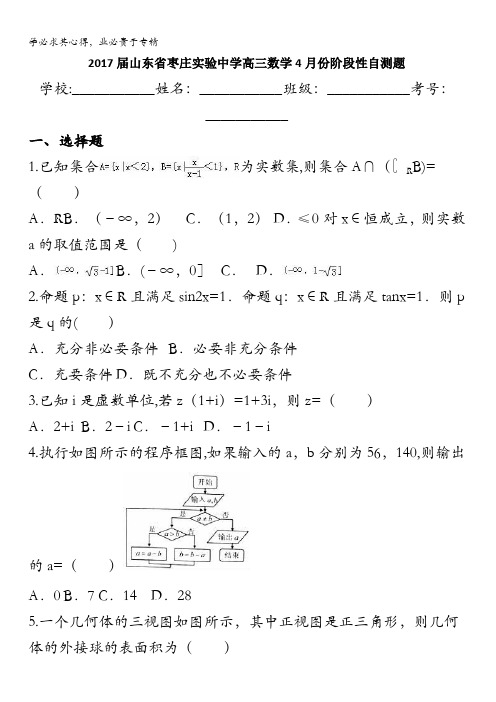 学必求其心得，业必贵于专精
2017届山东省枣庄实验中学高三数学4月份阶段性自测题
学校:___________姓名：___________班级：___________考号：
___________
一、选择题
1.已知集合A={x|x<2}，B={x|x/(x-1)<1}，R为实数集,则集合A∩（∁RB)=
（　　）
A．RB．（﹣∞，2）　C．（1，2）D．≤0对x∈恒成立，则实数
a的取值范围是（　　)
A．(-∞，√3-1]B．(﹣∞，0]　C．　D．(-∞，1-√3]
2.命题p：x∈R且满足sin2x=1．命题q：x∈R且满足tanx=1．则p
是q的(　　）
A．充分非必要条件　B．必要非充分条件
C．充要条件D．既不充分也不必要条件
3.已知i是虚数单位,若z（1+i）=1+3i，则z=（　　）
A．2+i　B．2﹣i C．﹣1+i　D．﹣1﹣i
4.执行如图所示的程序框图,如果输入的a，b分别为56，140,则输出
开始
输入a,b
是
a≠b
否
是
a>b
否
输出a
a=a-b
b=b-a
结束
的a=（　　）
A．0 B．7 C．14　D．28
5.一个几何体的三视图如图所示，其中正视图是正三角形，则几何
体的外接球的表面积为（　　）